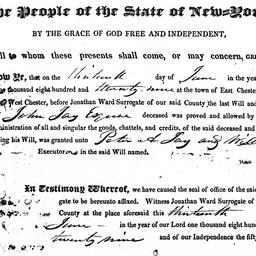 he People of the State of New-Yor
BY THE GRACE OF GOD FREE AND INDEPENDENT,
ll to whom these presents shall come, or may concern,
ow Ye, that on the Ninteenth day of June in the year
ousand eight hundred and Twenty nine at the town of East Chester
West Chester, before Jonathan Ward Surrogate of our said County the last Will and
John Jay Esquire deceased was proved and allowed by
ministration of all and singular the goods, chattels, and credits, of the said deceased and
ing his Will, was granted unto Peter A Jay and Will
Executors in the said Will named.
In Testimony Whereof, we have caused the seal of office of the said
gate to be hereunto affixed. Witness Jonathan Ward Surrogate of
County at the place aforesaid this
June in the year of our Lord one thousand eight hund
twenty nine and of our Independence the fif